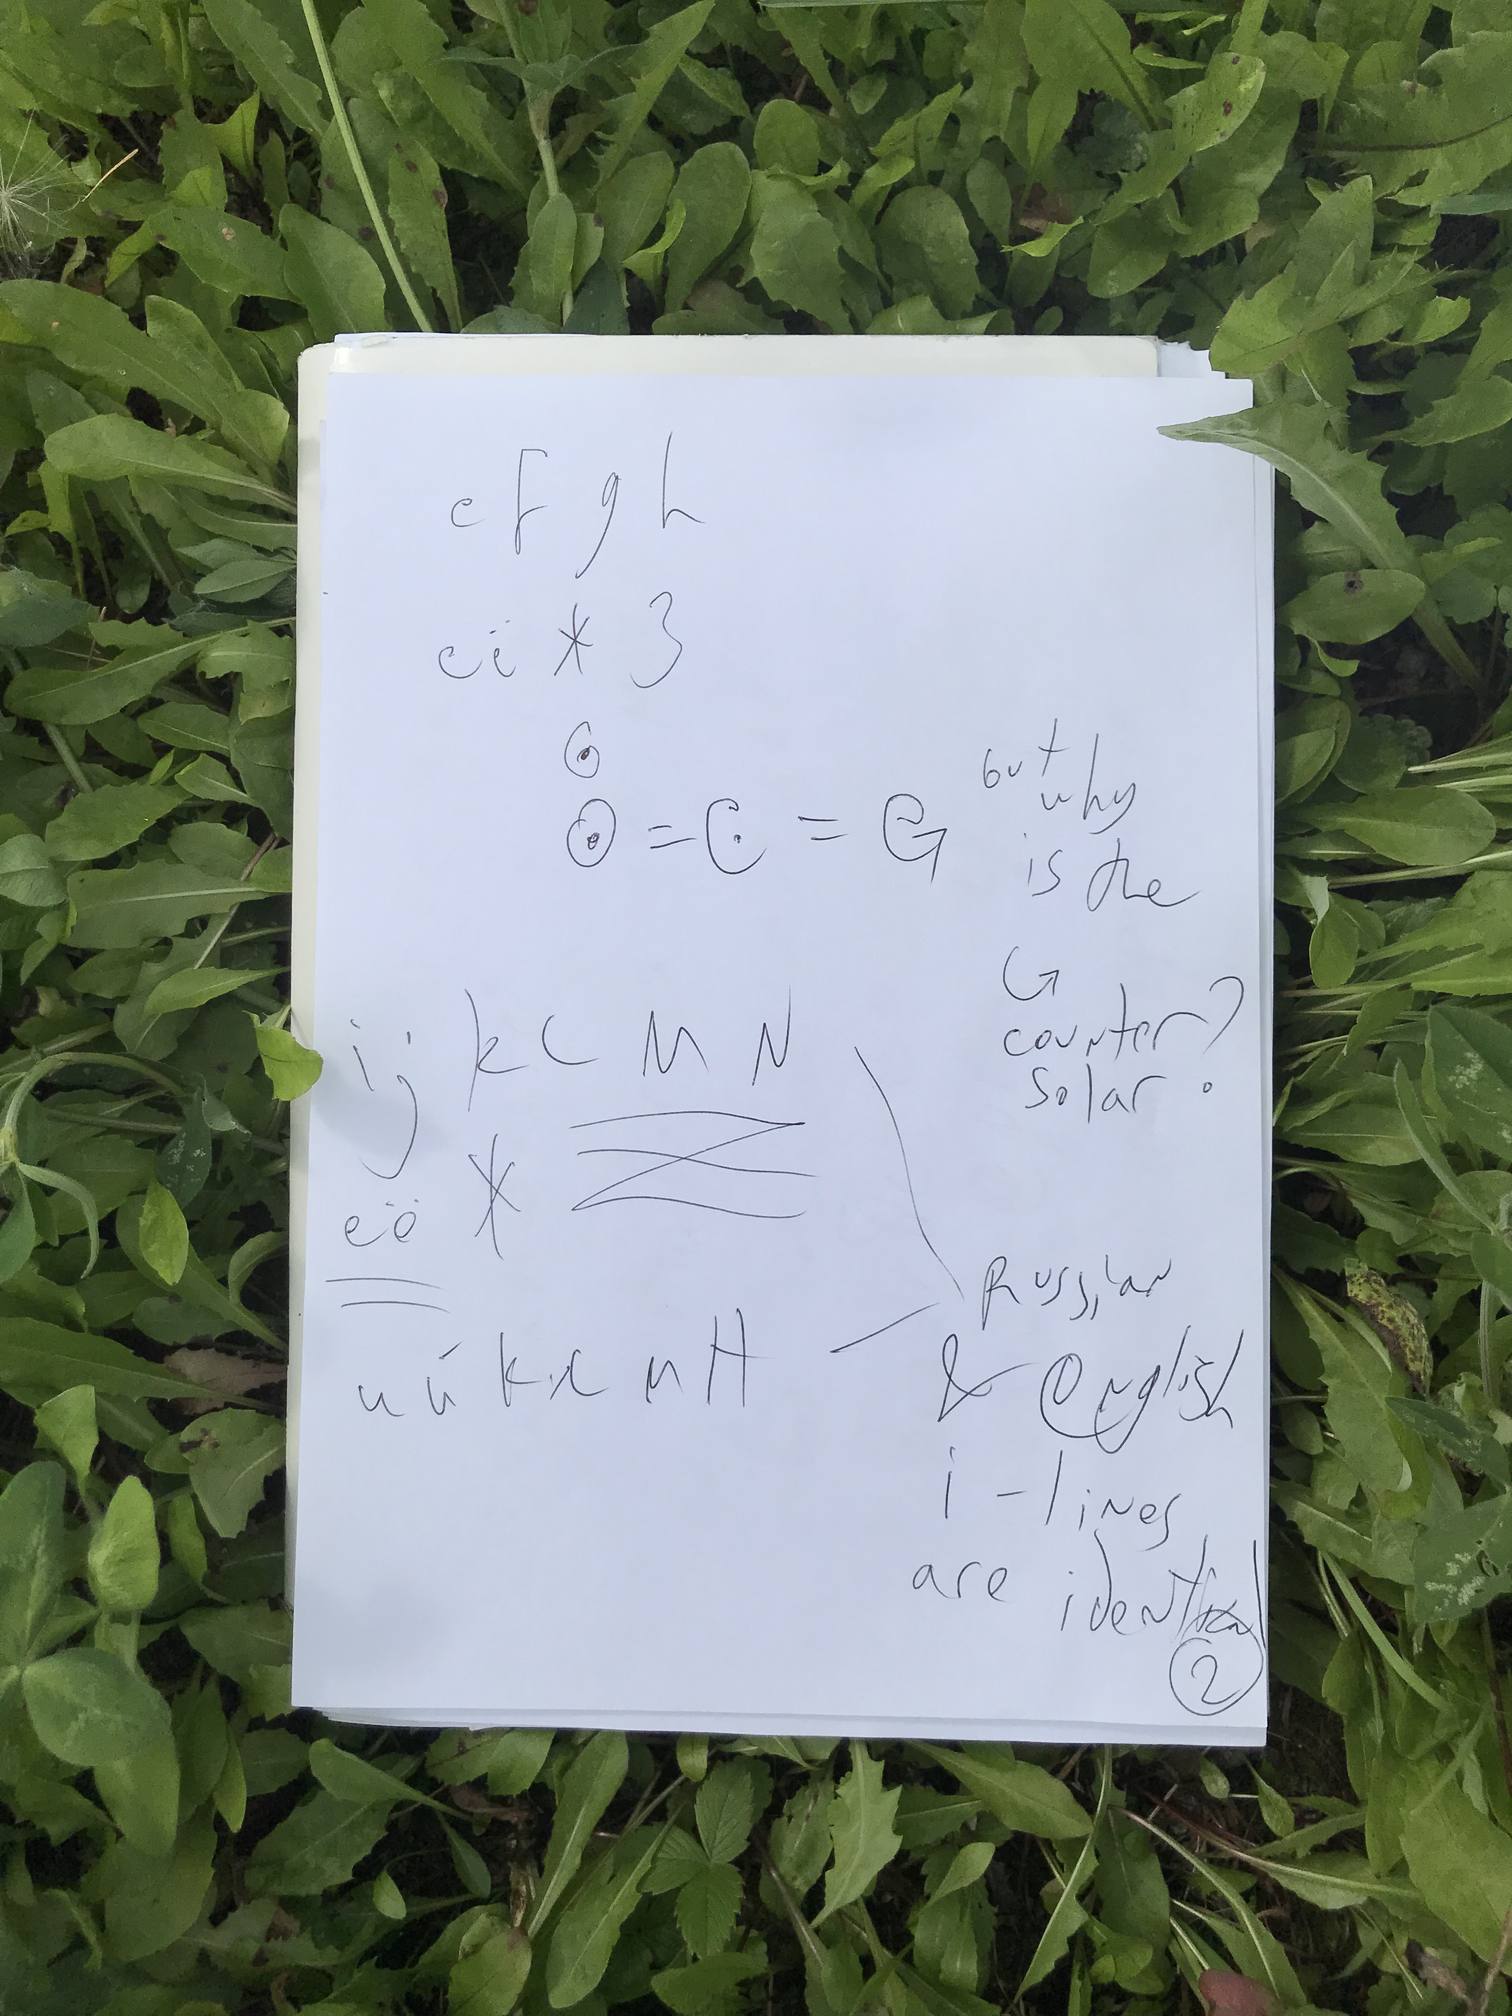 e F g h
e ё ж З
G
O = C = G
but
why
is the
G
counter?
solar
i j k L M N
е ё ж
и й к л м н
Russian
& english
i - lines
are identical
2